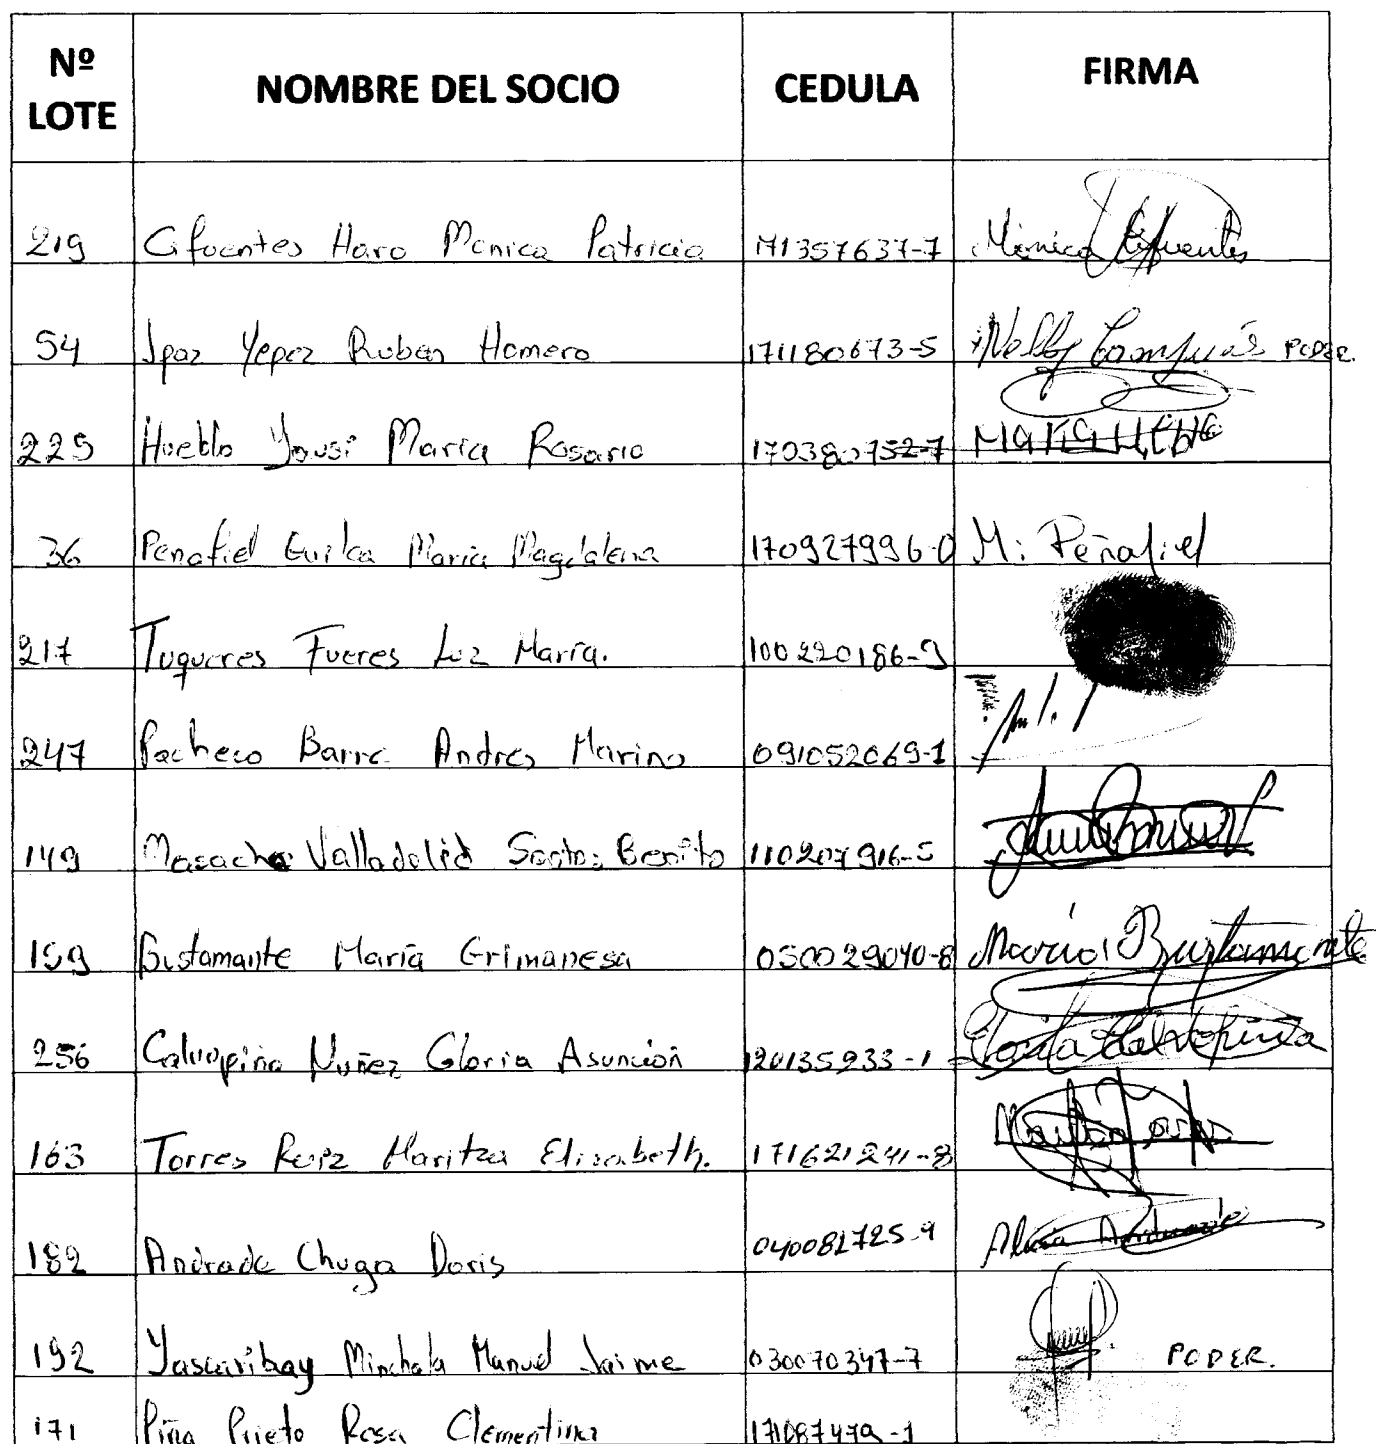 Nº LOTE NOMBRE DEL SOCIO CEDULA FIRMA
219 Cifuentes Haro Monica Patricia 171357637-7 Monica Cifuentes
54 Ipaz Yepez Ruben Homero 171180673-5 Nelly PODER.
225 Hueblo Yausi María Rosario 170380752-7
36 Penafiel Guilca María Magdalena 170927996-0 M: Peñafiel
217 Tuqueres Fueres Luz María. 100220186-9
247 Pacheco Barre Andres Marino 091052069-1
149 Masache Valladolid Santos Benito 110207916-5
159 Bustamante María Grimanesa 050029040-8 María Bustamante
256 Calvopiña Nuñez Gloria Asunción 120135933-1 Gloria Calvopiña
163 Torres Ruiz Maritza Elizabeth. 171621241-8
182 Andrade Chuga Doris 040081725-9 Andrade
192 Yascaribay Minchala Manuel Jaime 030070347-7 PODER.
171 Piña Prieto Rosa Clementina 171087479-1